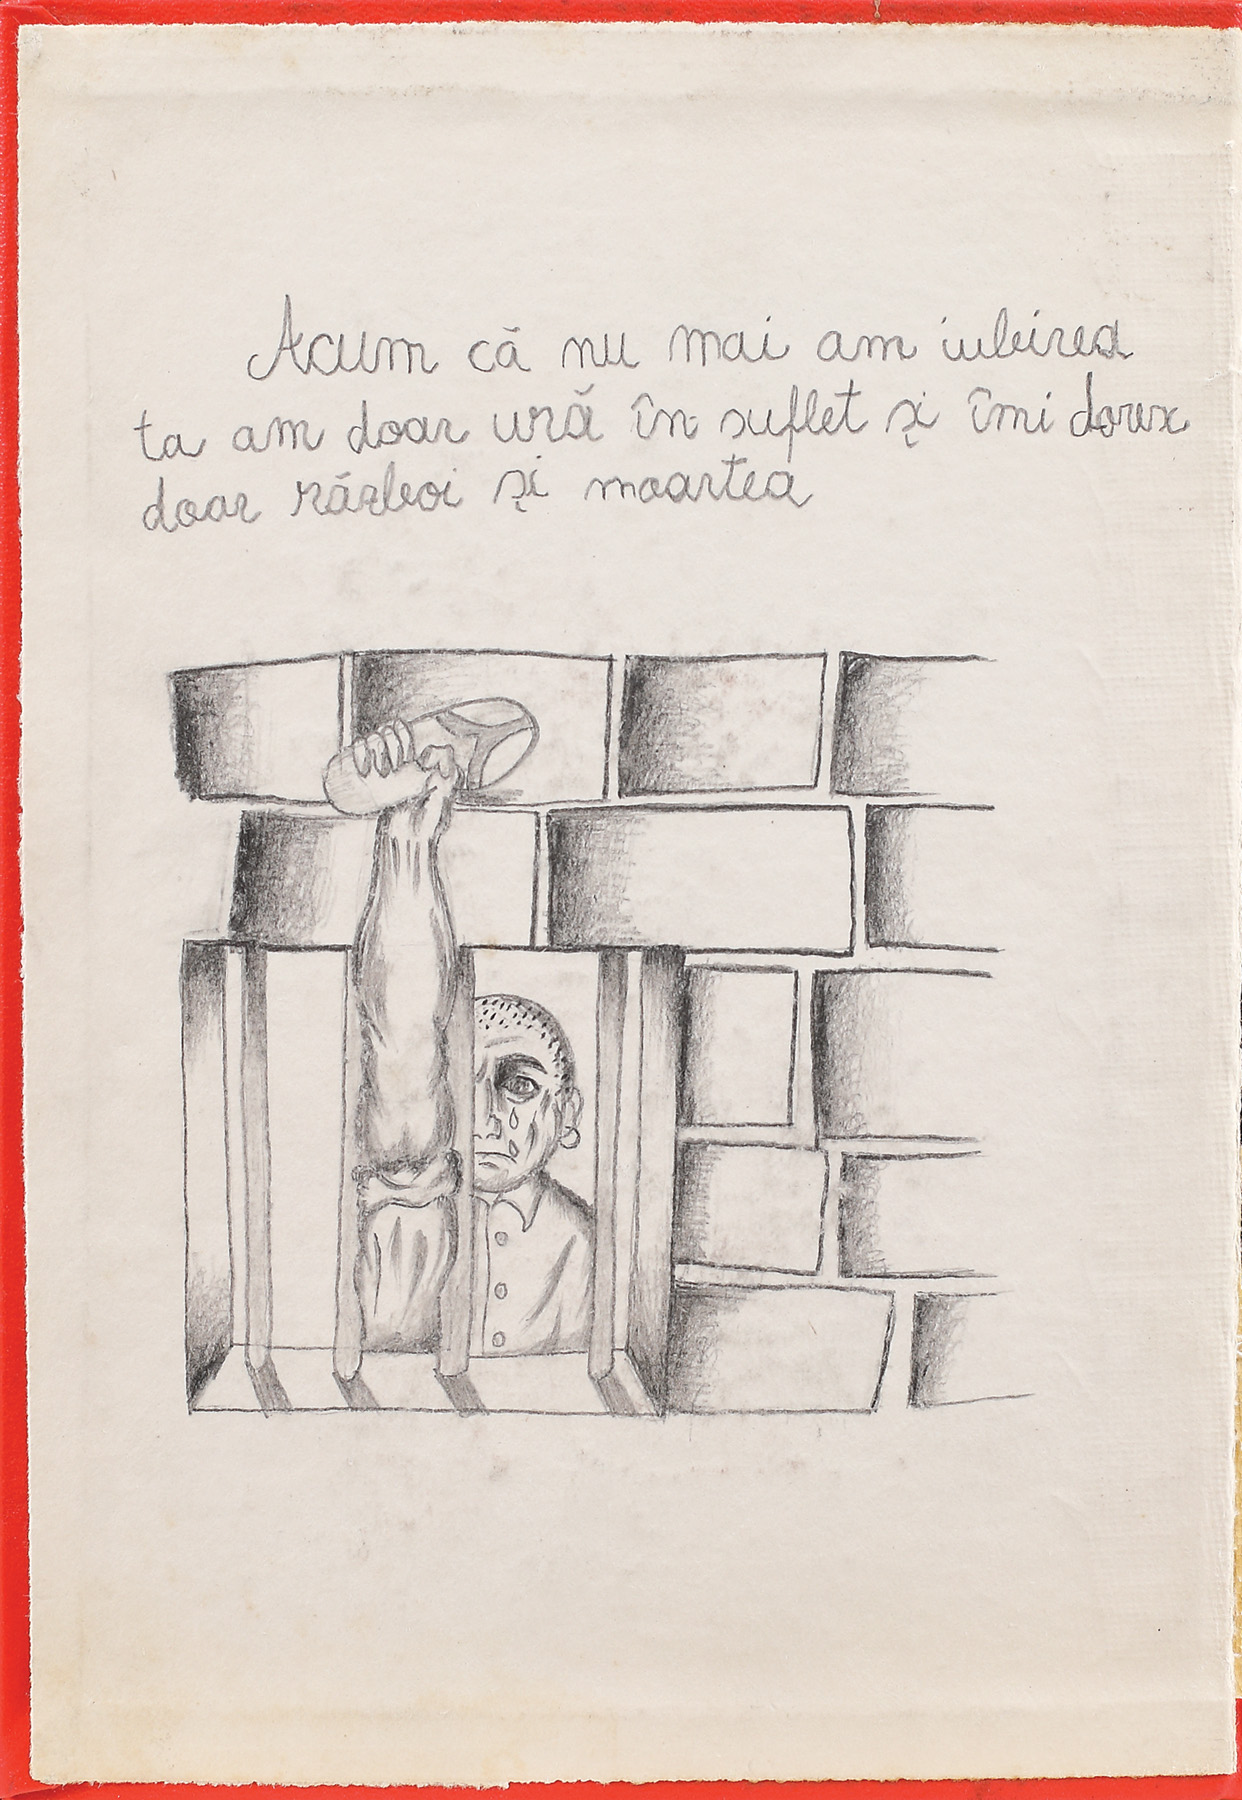 Acum că nu mai am iubirea
ta am doar ură în suflet și îmi dorex
doar război și moartea